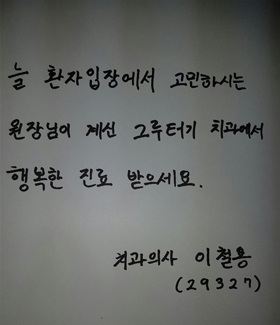 늘 환자입장에서 고민하시는
원장님이 계신 그루터기 치과에서
행복한 진료 받으세요.
치과의사 이철용
(29327)